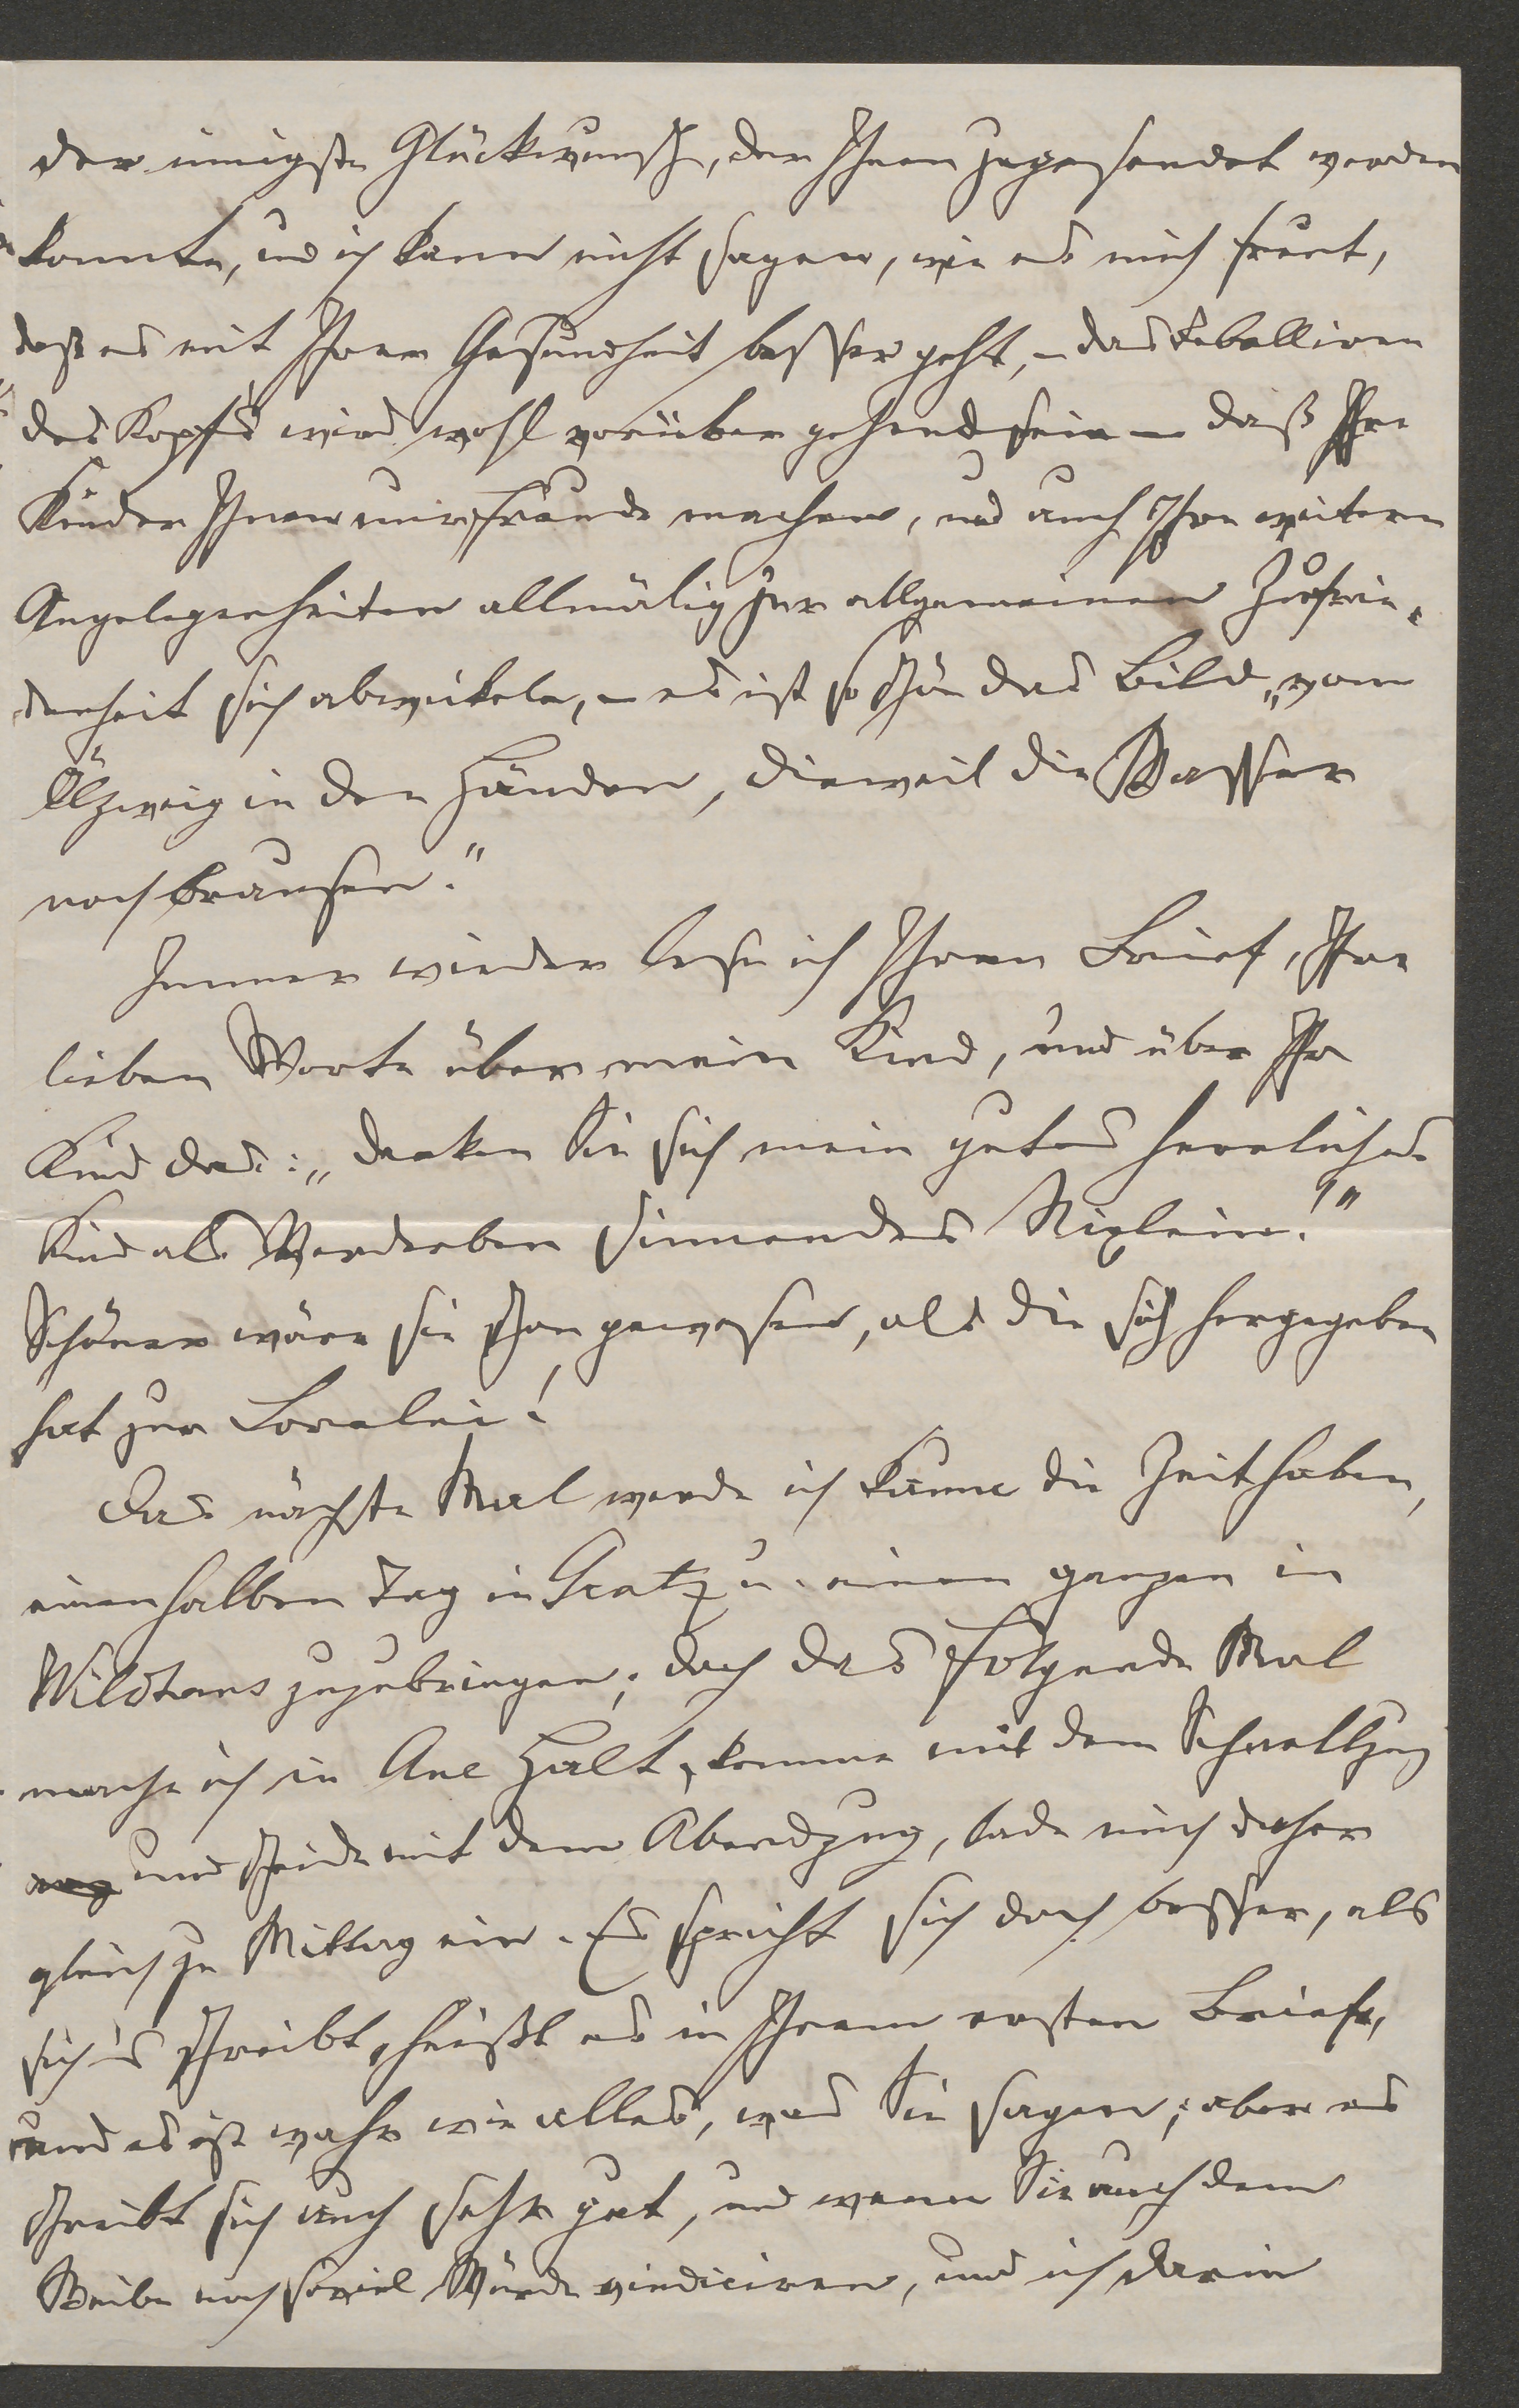 der innigste Glückwunsch, der Ihnen zugesendet werden
konnte, und ich kann nicht sagen, wie es mich freut,
daß es mit Ihrer Gesundheit besser geht, – das Rebelliren
des Kopfes wird wohl vorüber gehend sein – daß Ihre
Kinder Ihnen nur Freude machen, und auch Ihre weitern
Angelegenheiten allmälig zur allgemeinen Zufrie-
denheit sich abwickeln, – es ist so schön das Bild „vom
Ölzweig in den Händen, dieweil die Wasser
noch brausen."
Immer wieder lese ich Ihren Brief, Ihre
lieben Worte über mein Kind, und über Ihr
Kind das: „denken Sie sich mein gutes herrliches
Kind als Verderben sinnendes Nixlein!"
Schöner wäre sie schon gewesen, als die sich hergegeben
hat zur Lorelei!
Das nächste Mal werde ich kaum die Zeit haben,
einen halben Tag in Gratz u. einen ganzen in
Wildhaus zuzubringen; doch das folgende Mal
mache ich in Aue Halt, komme mit dem Schnellzug
und scheide mit dem Abendzug, lade mich daher
gleich zu Mittag ein. Es spricht sich doch besser, als
sich's schreibt, heißt es in Ihrem ersten Briefe,
und es ist wahr wie alles, was Sie sagen; aber es
schreibt sich auch sehr gut, und wenn Sie auch dem
Weibe noch soviel Würde vindiciren, und ich darin